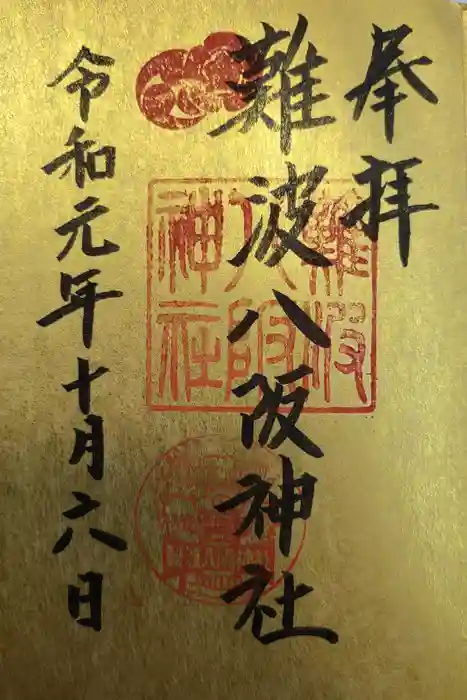 奉拝
難波八阪神社
難波
八阪
神社
令和元年十月六日